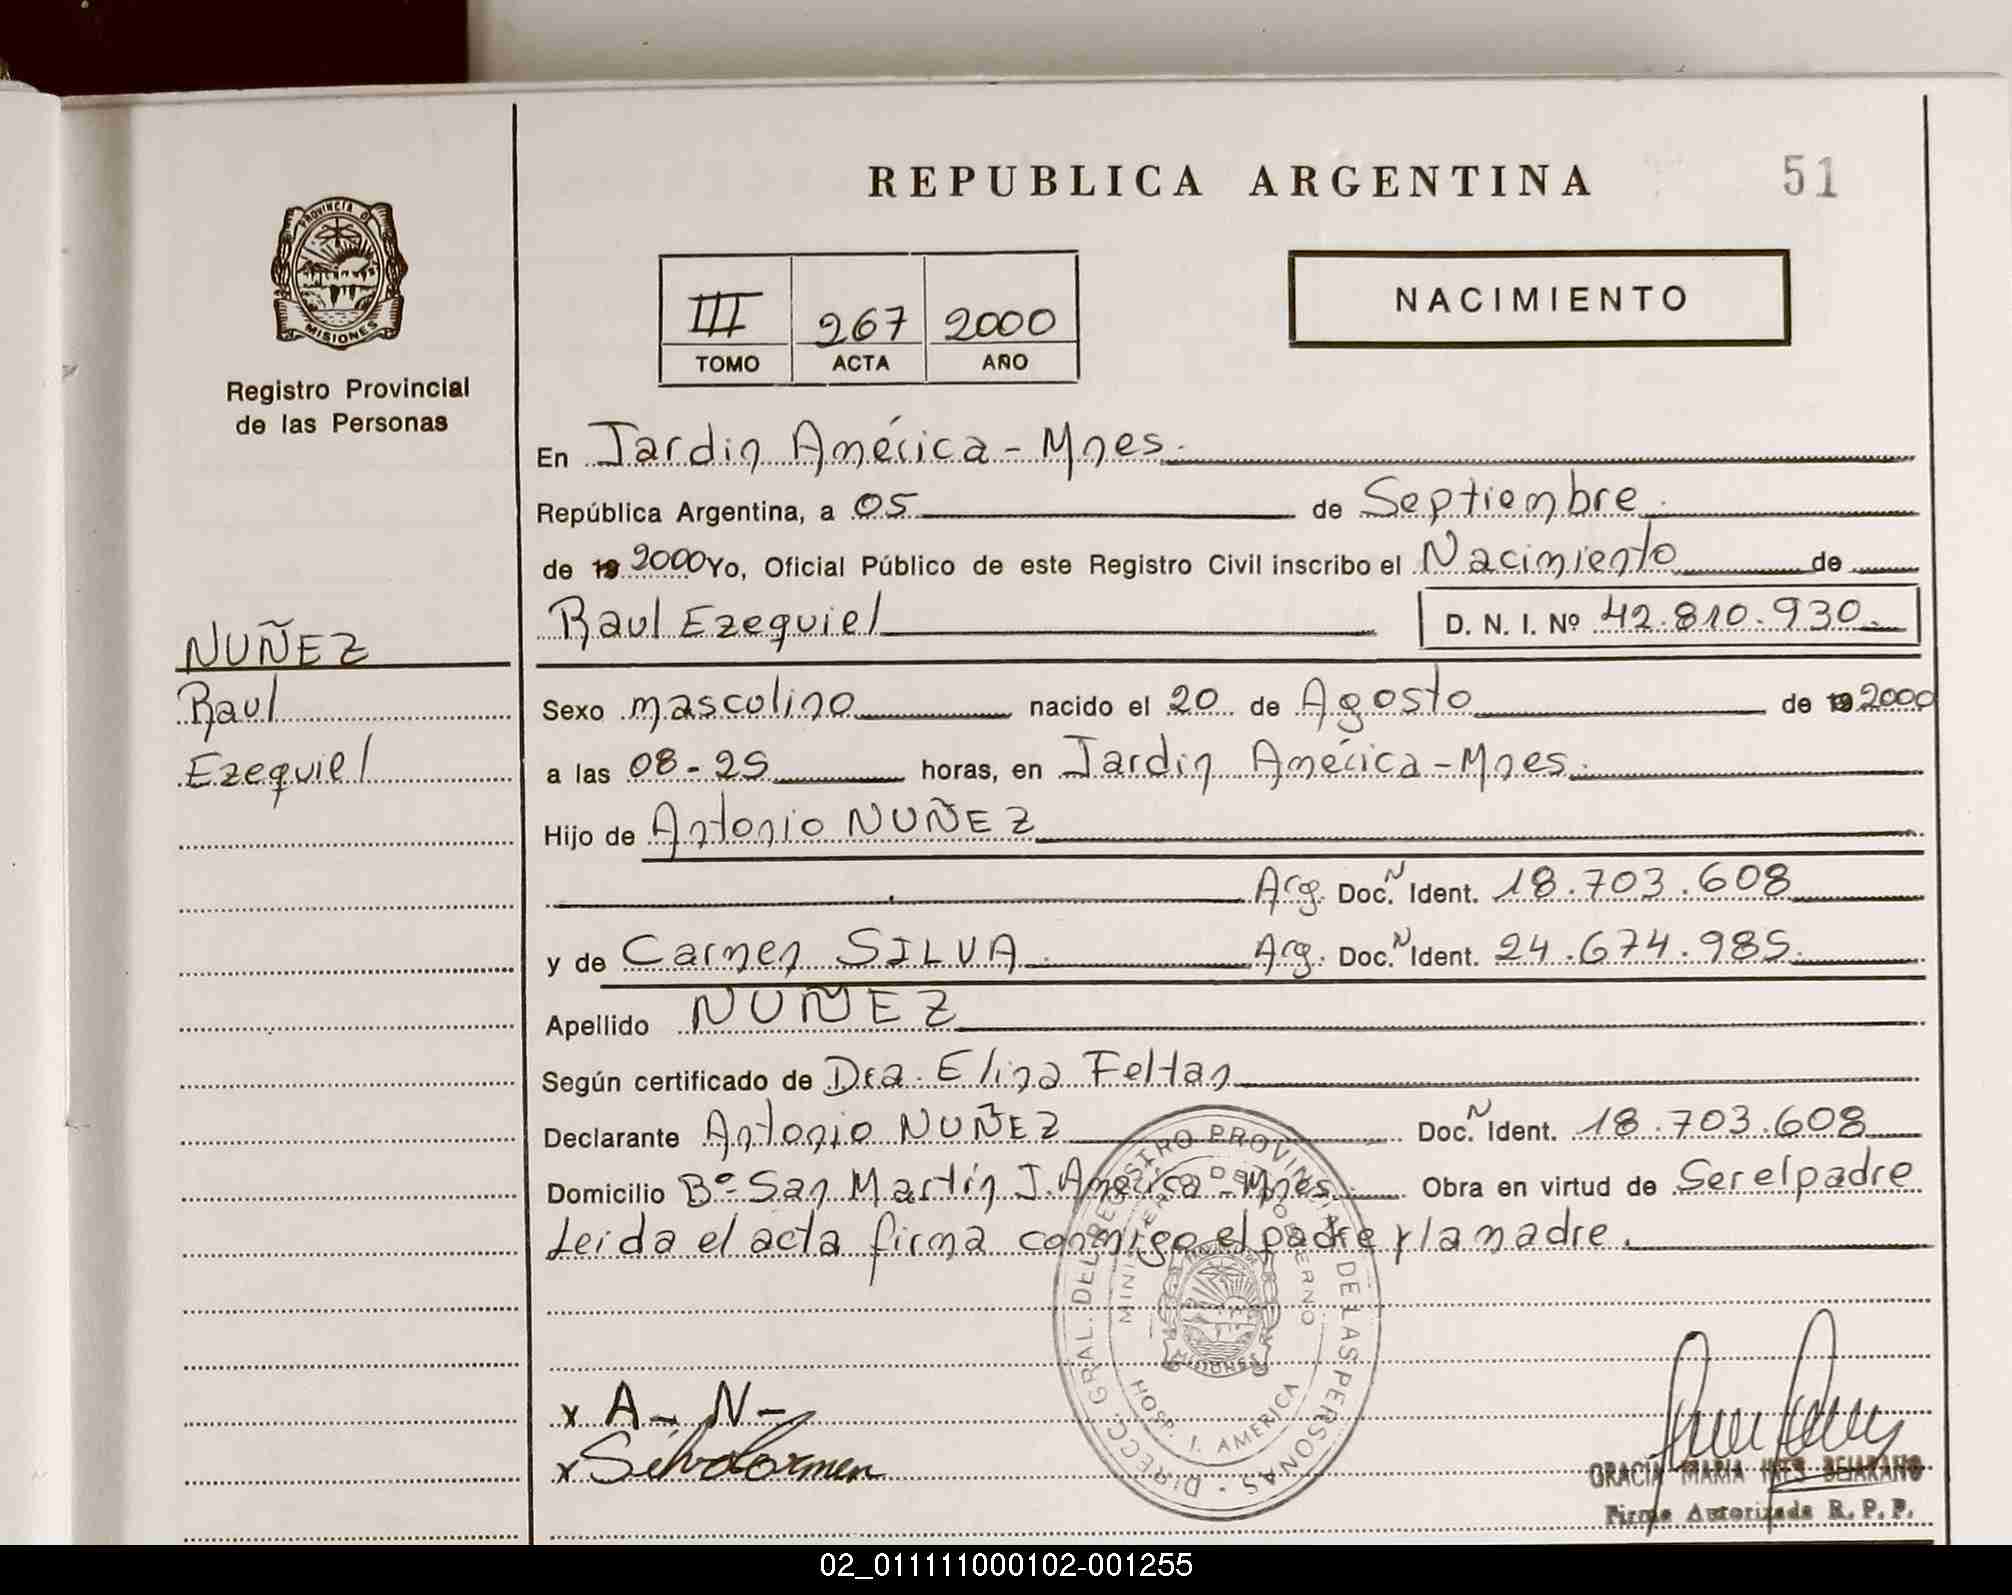 REPUBLICA ARGENTINA
51
PROVINCIA D
MISIONES
Registro Provincial
de las Personas
III 267 2000
TOMO ACTA AÑO
NACIMIENTO
En Jardin América - Mnes.
República Argentina, a 05 de Septiembre.
de 19 2000 Yo, Oficial Público de este Registro Civil inscribo el Nacimiento de
Raul Ezequiel D. N. I. Nº 42.810.930.
NUÑEZ
Raul
Ezequiel
Sexo masculino nacido el 20 de Agosto de 19 2000
a las 08-25 horas, en Jardin América - Mnes.
Hijo de Antonio NUÑEZ
Arg. Doc. N Ident. 18.703.608
y de Carmen SILVA. Arg. Doc. N Ident. 24.674.985.
Apellido NUÑEZ
Según certificado de Dra. Elina Feltan
Declarante Antonio NUÑEZ Doc. N Ident. 18.703.608
Domicilio Bº San Martín J. América - Mnes. Obra en virtud de Ser el padre
Leida el acta firma conmigo el padre y la madre.
DIRECC. GRAL. DEL REGISTRO PROVINCIAL DE LAS PERSONAS
MINISTERIO DE GOBIERNO
MISIONES
HOSP. J. AMERICA
x A - N -
x Silva Carmen
GRACIA MARIA INES BEJARANO
Firma Autorizada R. P. P.
02_011111000102-001255